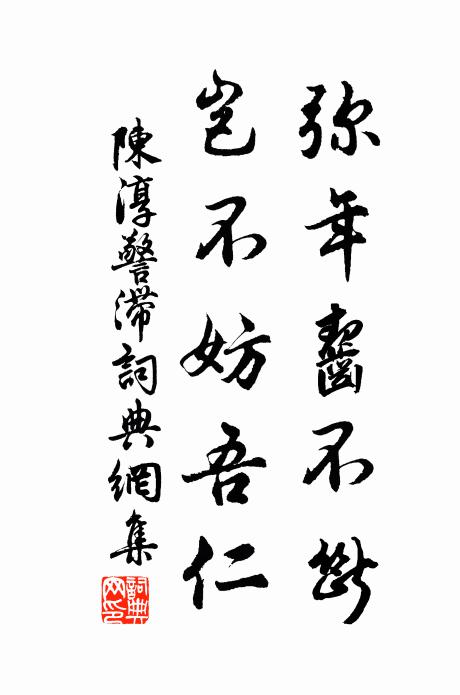 弥年齧不断
岂不妨吾仁
陳淳警滯詞典網集
詞典网印